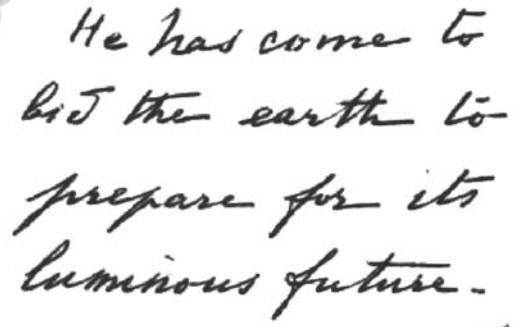 He has come to
bid the earth to
prepare for its
luminous future.